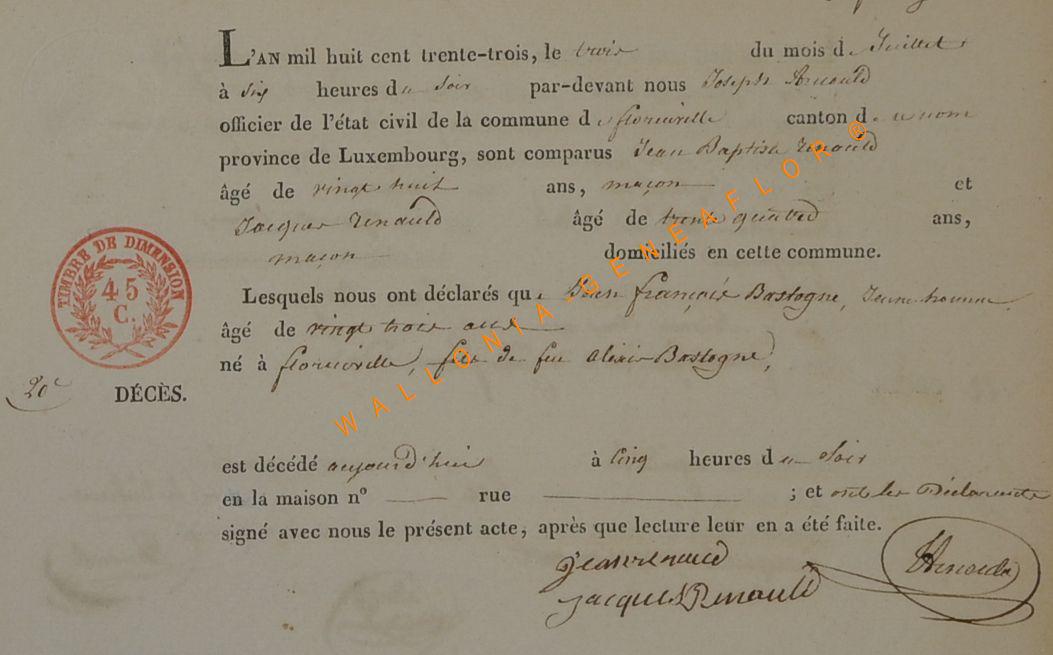 L'AN mil huit cent trente-trois, le trois du mois de Juillet
à Six heures du Soir par-devant nous Joseph Arnould
officier de l'état civil de la commune de florenville canton de
province de Luxembourg, sont comparus Jean Baptiste Renauld
âgé de vingt huit ans, maçon et
Jacques Renauld âgé de trente quatre ans,
maçon domiciliés en cette commune.
Lesquels nous ont déclarés que Jean françois Bastogne, Jeune homme
âgé de vingt trois ans
né à florenville, fils de feu Alexis Bastogne,
TIMBRE DE DIMENSION
45
C.
20e DÉCÈS.
est décédé aujourd'hui à Cinq heures du Soir
en la maison nº rue ; et ont les Déclarants
signé avec nous le présent acte, après que lecture leur en a été faite.
Jean renaud
Jacques Renauld
Arnould
WALLONIA-GENEAFLOR®